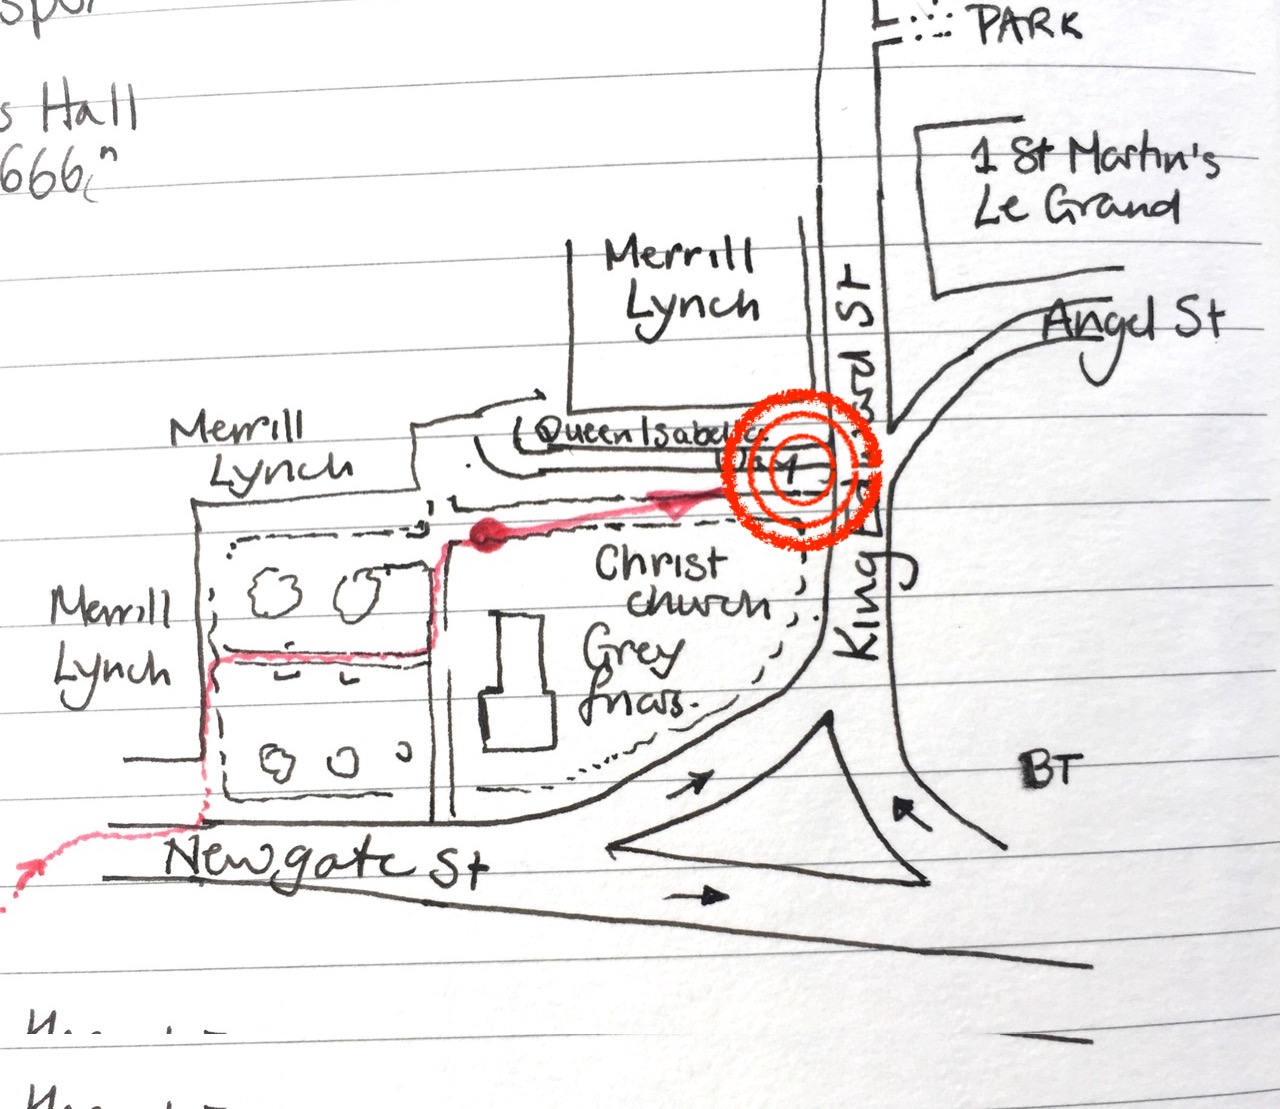 s Hall
666"
PARK
1 St Martin's
Le Grand
Merrill
Lynch
Angel St
King Edward St
Merrill
Lynch
Queen Isabella
Way
Christ
church
Grey
friars.
Merrill
Lynch
BT
Newgate St